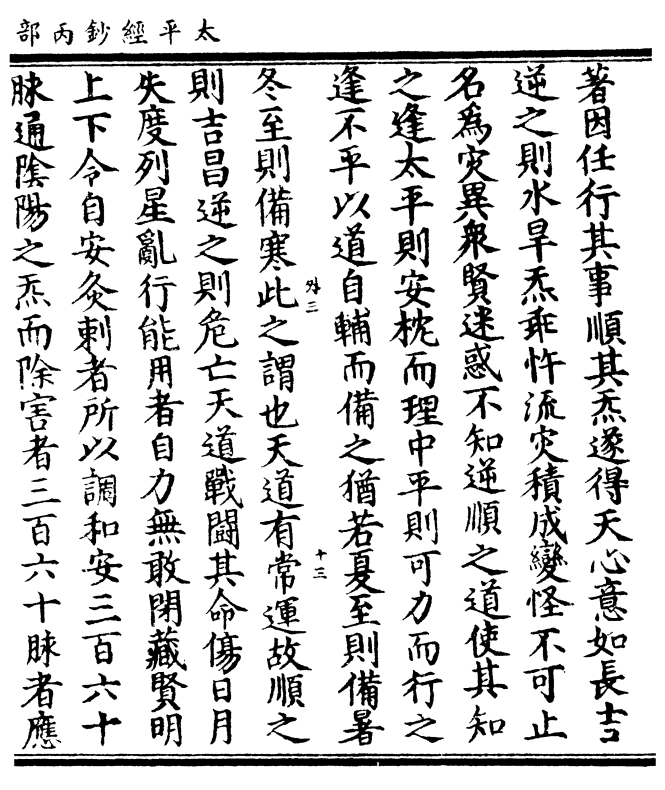 太平經鈔丙部
著因任行其事順其炁遂得天心意如長吉
逆之則水旱炁乖忤流灾積成變怪不可止
名為灾異衆賢迷惑不知逆順之道使其知
之逢太平則安枕而理中平則可力而行之
逢不平以道自輔而備之猶若夏至則備暑
冬至則備寒此之謂也天道有常運故順之
外三
十三
則吉昌逆之則危亡天道戰鬪其命傷日月
失度列星亂行能用者自力無敢閉藏賢明
上下令自安灸刺者所以調和安三百六十
脉通陰陽之炁而除害者三百六十脉者應